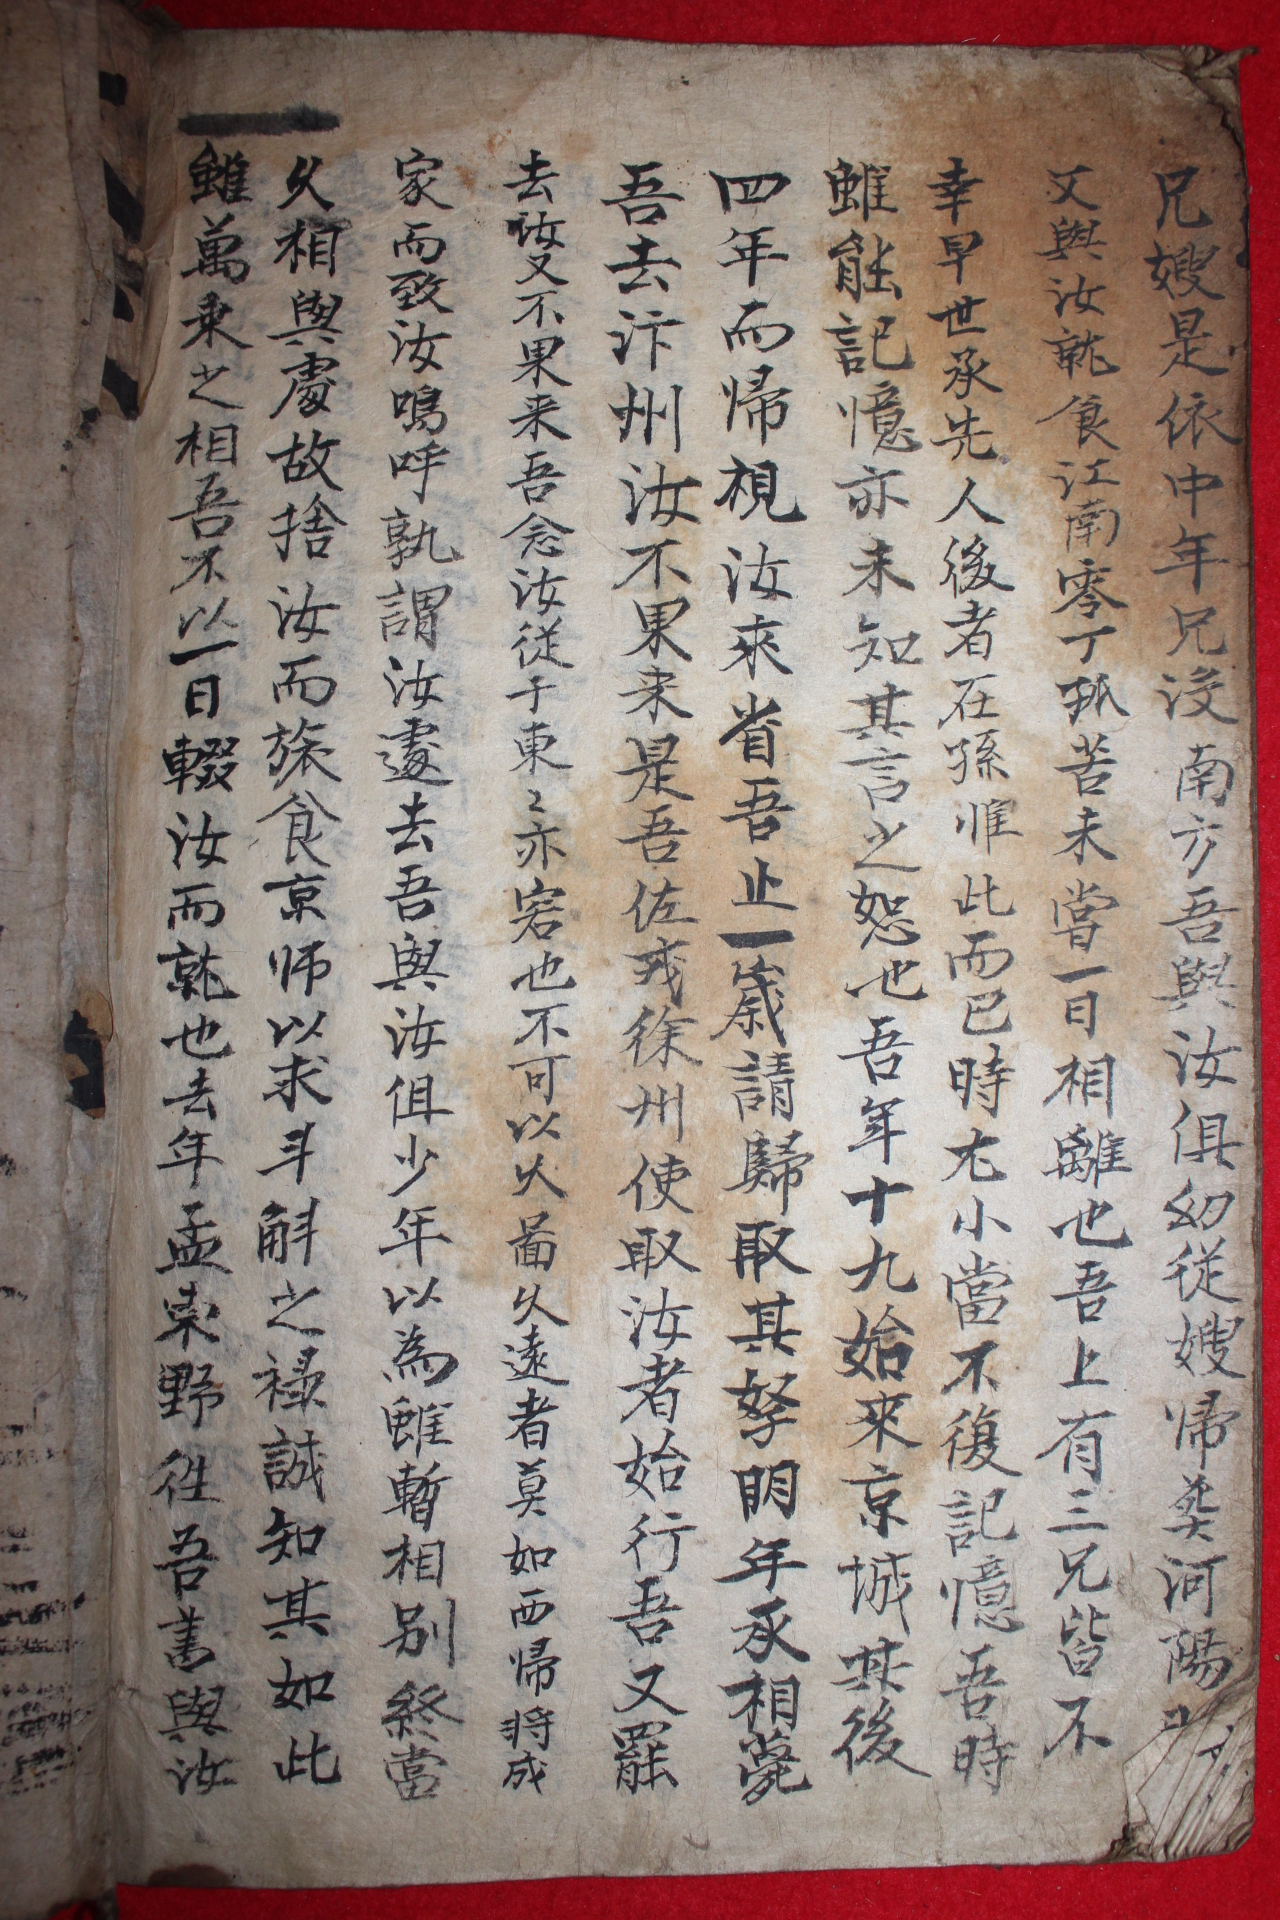 兄嫂是依中年兄没南方吾與汝俱幼從嫂帰葬河陽
又與汝就食江南零丁孤苦未嘗一日相離也吾上有三兄皆不
幸早世承先人後者在孫惟此而已時尤小當不復記憶吾時
雖能記憶亦未知其言之恕也吾年十九始來京城其後
四年而帰視汝來省吾止一歲請歸取其孥明年承相薨
吾去汴州汝不果来是吾佐戎徐州使取汝者始行吾又罷
去汝又不果来吾念汝從于東〻亦客也不可以久啚久遠者莫如西帰将成
家而致汝嗚呼孰謂汝遽去吾與汝俱少年以為雖暫相别終當
久相與處故捨汝而旅食京师以求斗斛之禄誠知其如此
雖萬乗之相吾不以一日輟汝而就也去年孟東野徃吾書與汝